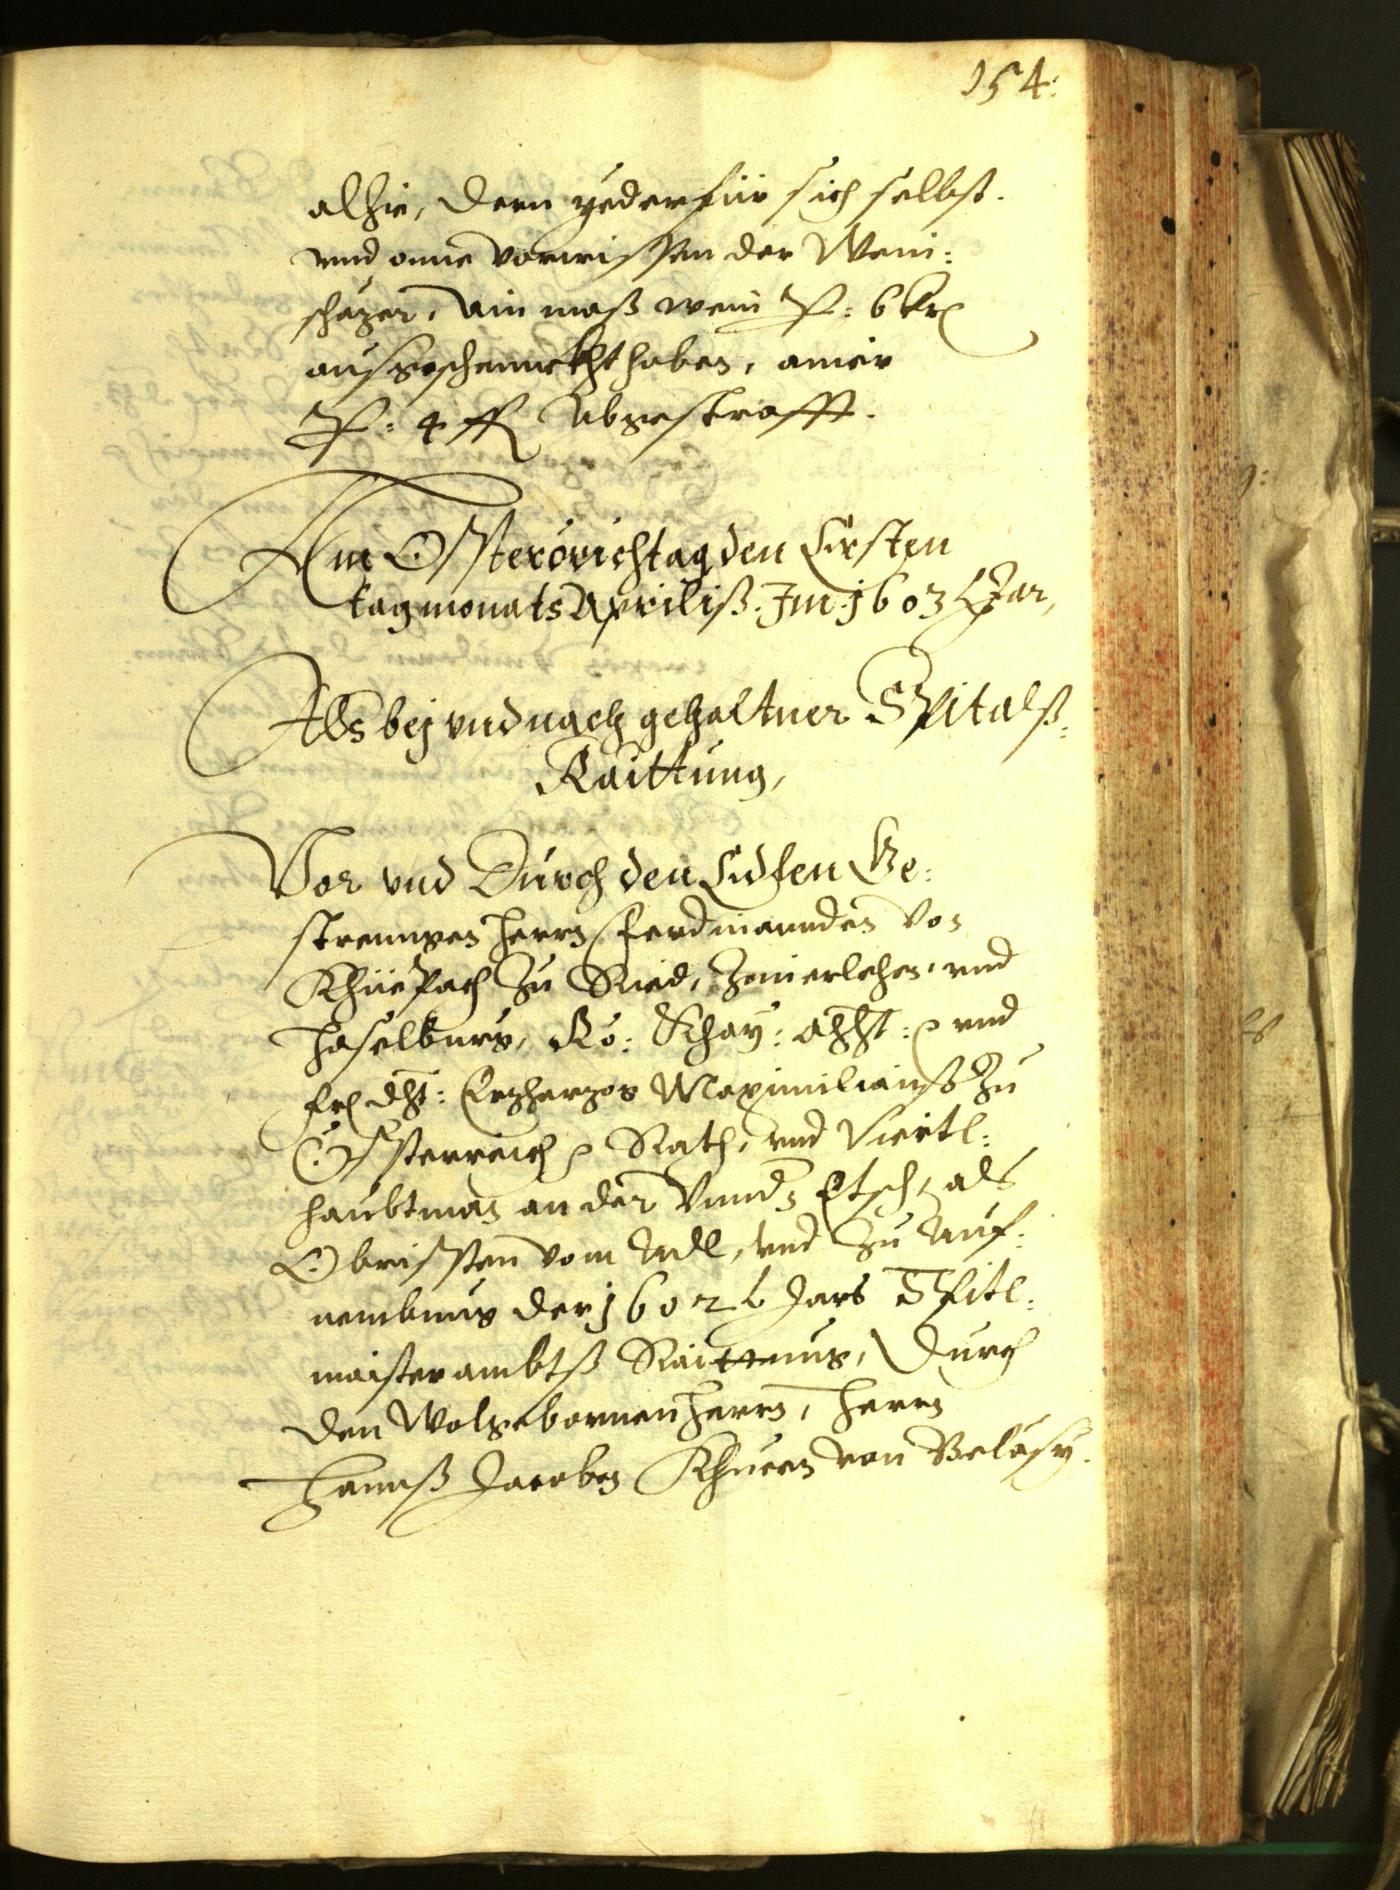 154.
alhie, deren yeder für sich selbst.
vnd onne vorwissen der Wein:
schäzer, ain mass wein P: 6 kr
ausgeschennckht haben, ainer
P: 4 fl Abgestrafft.
Am Ossterörichtag den Ersten
tag monats Apriliß. Im 1603 Jar,
Als bej vnd nach gehaltner Spitalß:
Raittung,
Vor vnd Durch den Edlen Ge:
strenngen herrn Ferdinannden von
Khüepach zu Ried, Zimerlehen, vnd
Haselburg, Rö: Khay:  vnd
 Erzherzog Maximilianß zu
Össterreich Rath, vnd Viertl:
haubtman an der Etsch, als
Obrissten vom Adl, vnd zu Auf:
nembung der 1602 Jars Spitl:
maisterambtß Raittung, Durch
den Wolgebornen herrn, Herrn
Hannß Jacoben Khuen von Belasy.